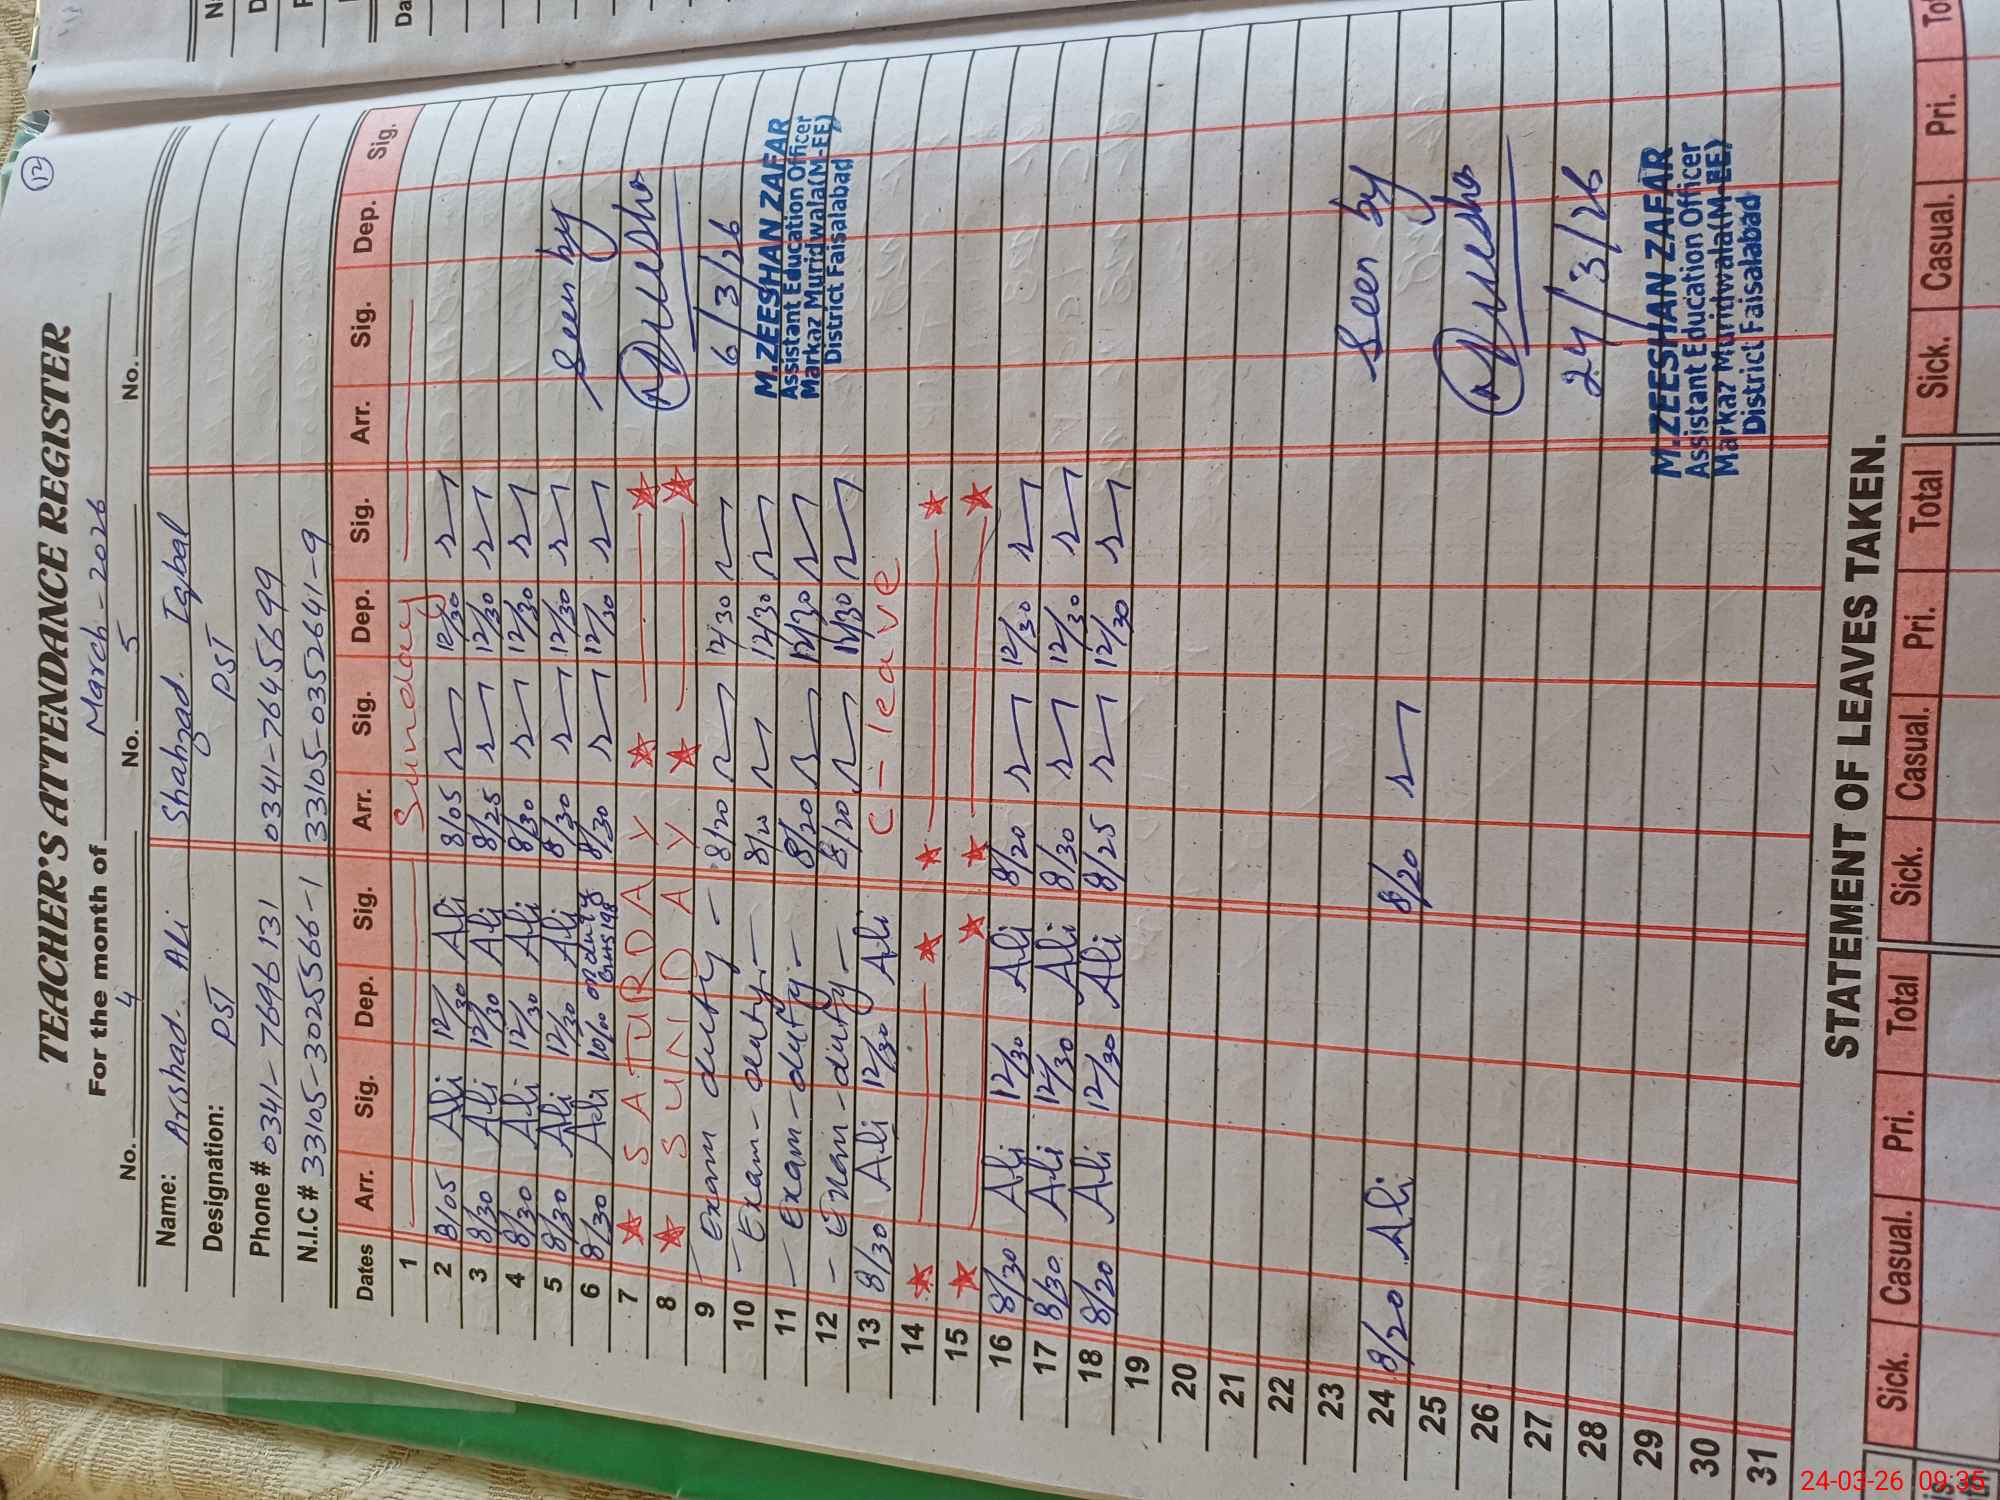 12
TEACHER'S ATTENDANCE REGISTER
For the month of March - 2026
No. 4 No. 5 No.
Name: Arshad. Ali Shahzad. Iqbal
Designation: PST PST
Phone # 0341-7696131 0341-7645699
N.I.C # 33105-3025566-1 33105-0352641-9
Dates Arr. Sig. Dep. Sig. Arr. Sig. Dep. Sig. Arr. Sig. Dep. Sig.
1 Sunday
2 8/05 Ali 12/30 Ali 8/05 12/30
3 8/30 Ali 12/30 Ali 8/25 12/30
4 8/30 Ali 12/30 Ali 8/30 12/30
5 8/30 Ali 12/30 Ali 8/30 12/30 Seen by
6 8/30 Ali 10/00 on duty GHS 198 8/30 12/30
7 SATURDAY
8 SUNDAY
9 Exam duty - 8/20 12/30 6/3/26
10 - Exam - duty - 8/20 12/30 M.ZEESHAN ZAFAR
Assistant Education Officer
11 - Exam - duty - 8/20 12/30 Markaz Muridwala(M-EE)
12 - Exam - duty - 8/20 12/30 District Faisalabad
13 8/30 Ali 12/30 Ali C - leave
14
15
16 8/30 Ali 12/30 Ali 8/20 12/30
17 8/30 Ali 12/30 Ali 8/30 12/30
18 8/20 Ali 12/30 Ali 8/25 12/30
19
20
21
22
23
24 8/20 Ali 8/20 Seen by
25
26
27
28 24/3/26
29
30 M.ZEESHAN ZAFAR
Assistant Education Officer
31 Markaz Muridwala(M-EE)
District Faisalabad
STATEMENT OF LEAVES TAKEN.
Sick. Casual. Pri. Total Sick. Casual. Pri. Total Sick. Casual. Pri.
24-03-26 09:35